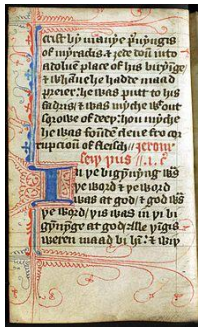 crist by manye pruyngis
of myraclis & ȝede doun into
a doluen place of his biryinge
& whanne he hadde maad
preier: he was putt to his
fadris & was myche wiþout
sorowe of deeþ: hou myche
he was founde clene fro cor
rupcioun of fleisch // ierom
seiþ þus // .i. c°
In þe bigynnyng was
þe word & þe word
was at god / & god was
þe word / þis was in þe bi
gynnynge at god / alle þingis
weren maad bi hi: & wiþ